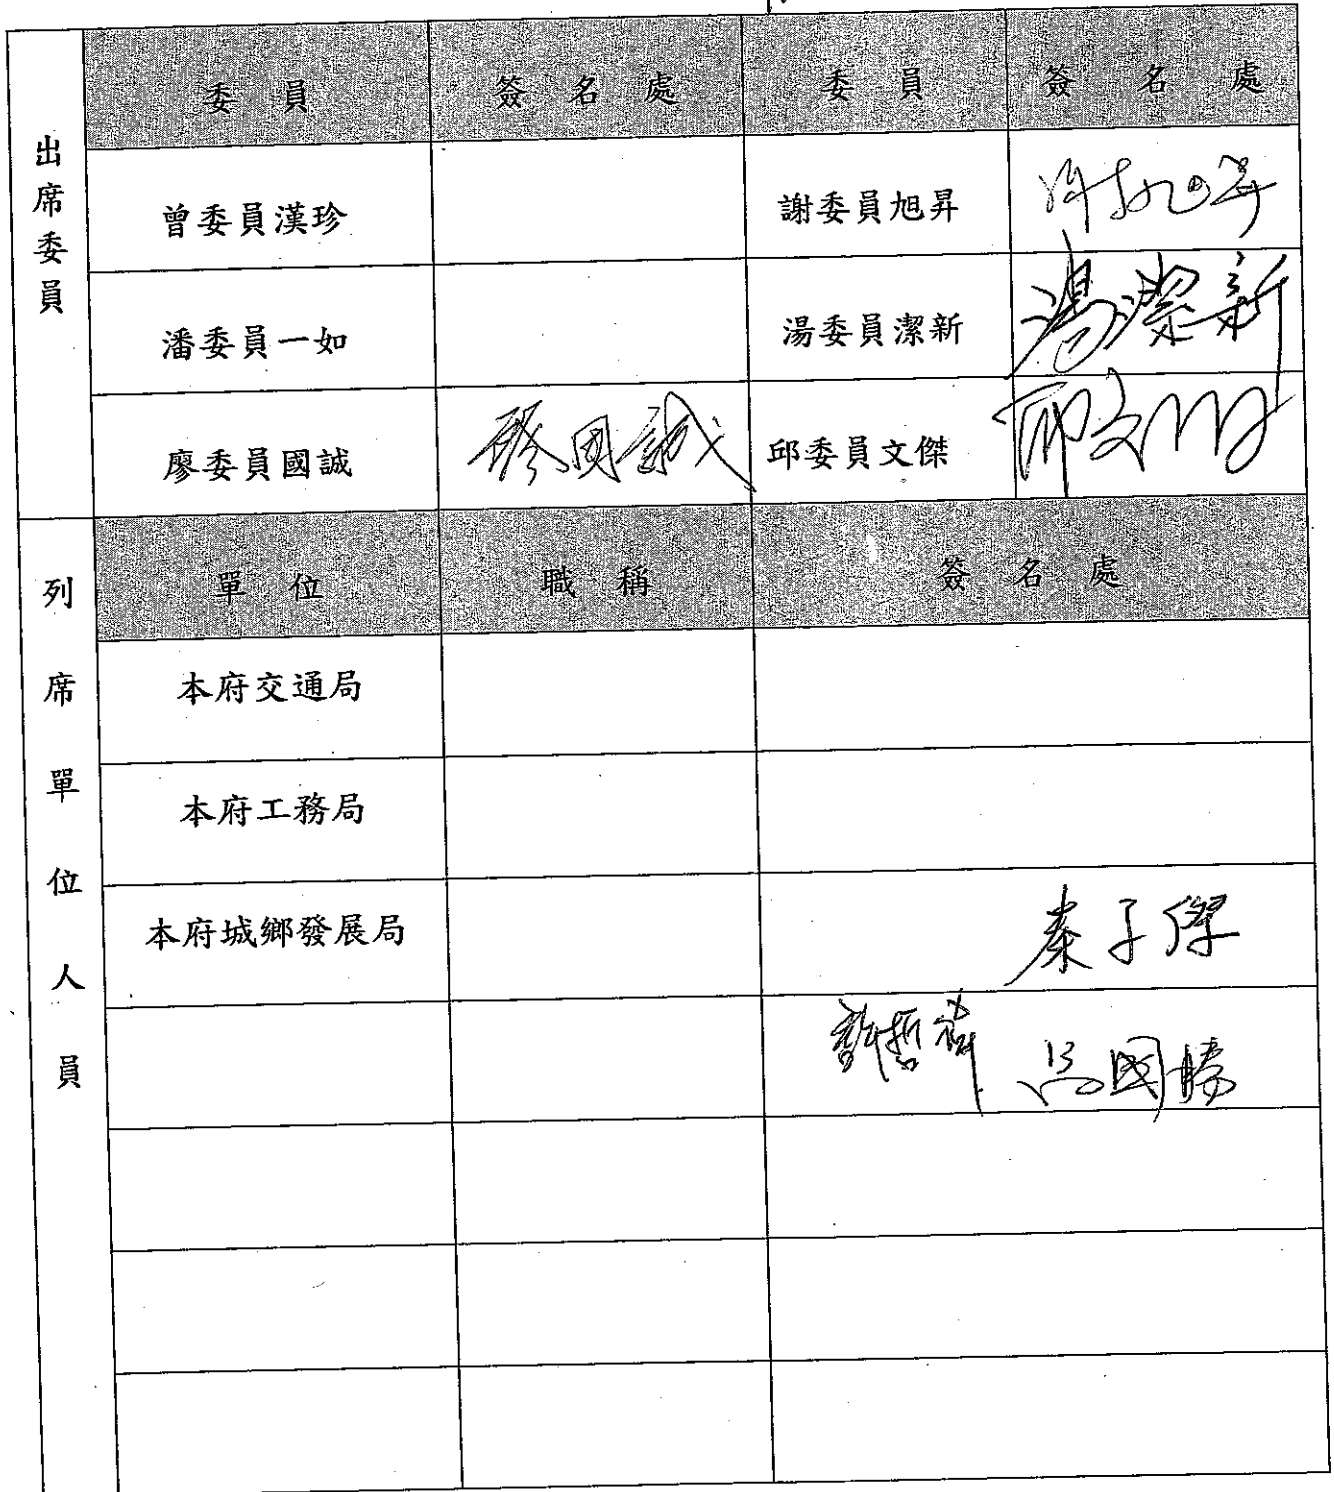 出席委員
委員 簽名處 委員 簽名處
曾委員漢珍 謝委員旭昇 謝旭昇
潘委員一如 湯委員潔新 湯潔新
廖委員國誠 廖國誠 邱委員文傑 邱文傑
列席單位人員
單位 職稱 簽名處
本府交通局
本府工務局
本府城鄉發展局 秦子傑
許哲 國